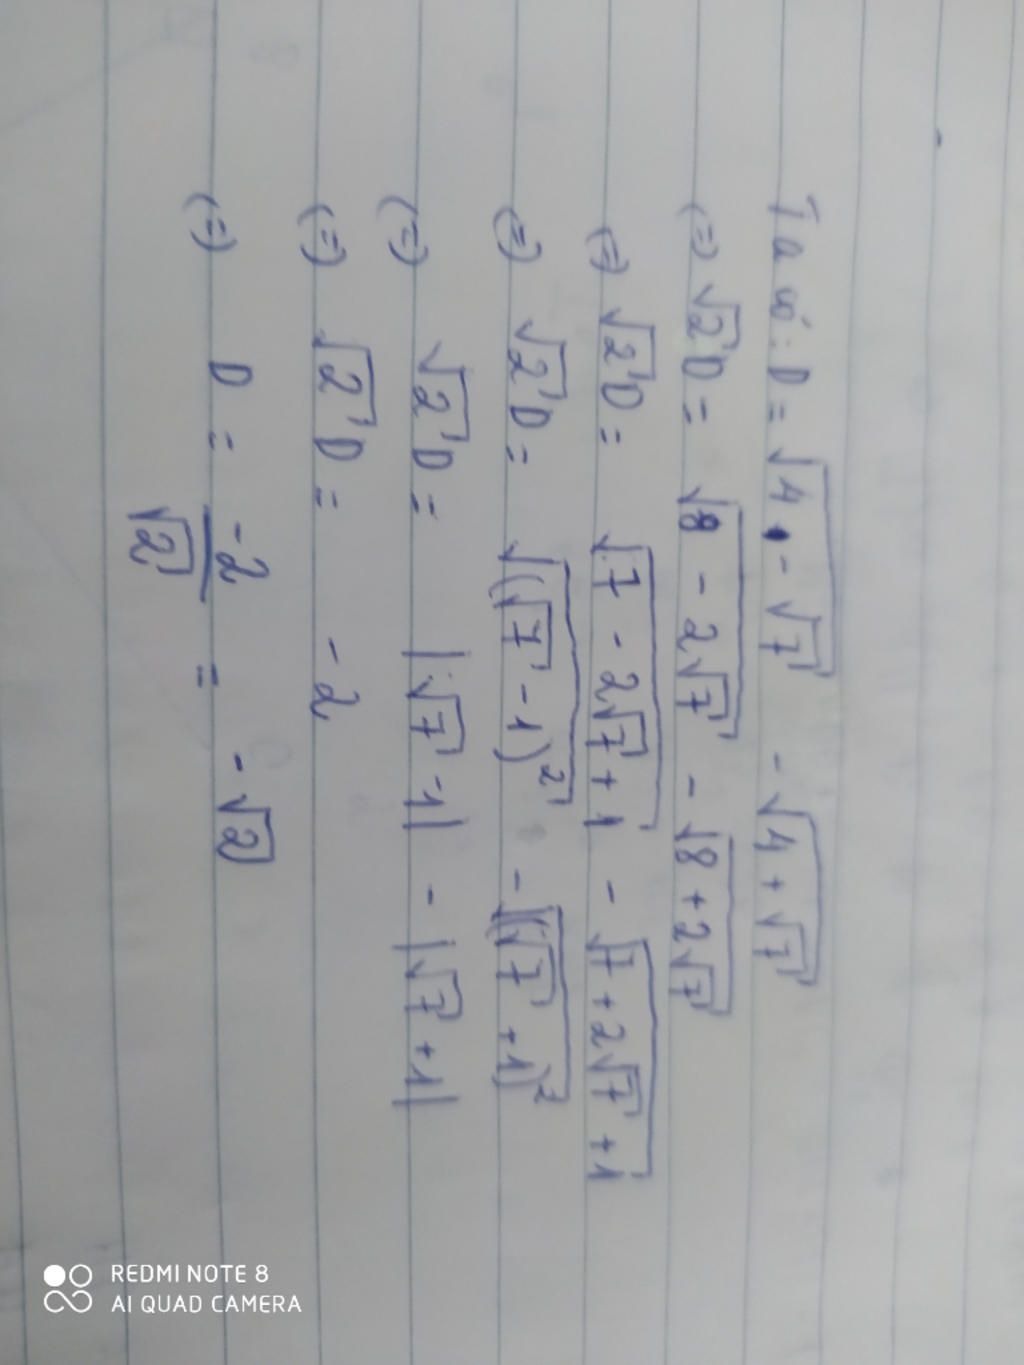 Ta có: D = √(4 - √7) - √(4 + √7)
(=) √2 D = √(8 - 2√7) - √(8 + 2√7)
(=) √2 D = √(7 - 2√7 + 1) - √(7 + 2√7 + 1)
(=) √2 D = √((√7 - 1)²) - √((√7 + 1)²)
(=) √2 D = |√7 - 1| - |√7 + 1|
(=) √2 D = -2
(=) D = -2/√2 = -√2
REDMI NOTE 8
AI QUAD CAMERA